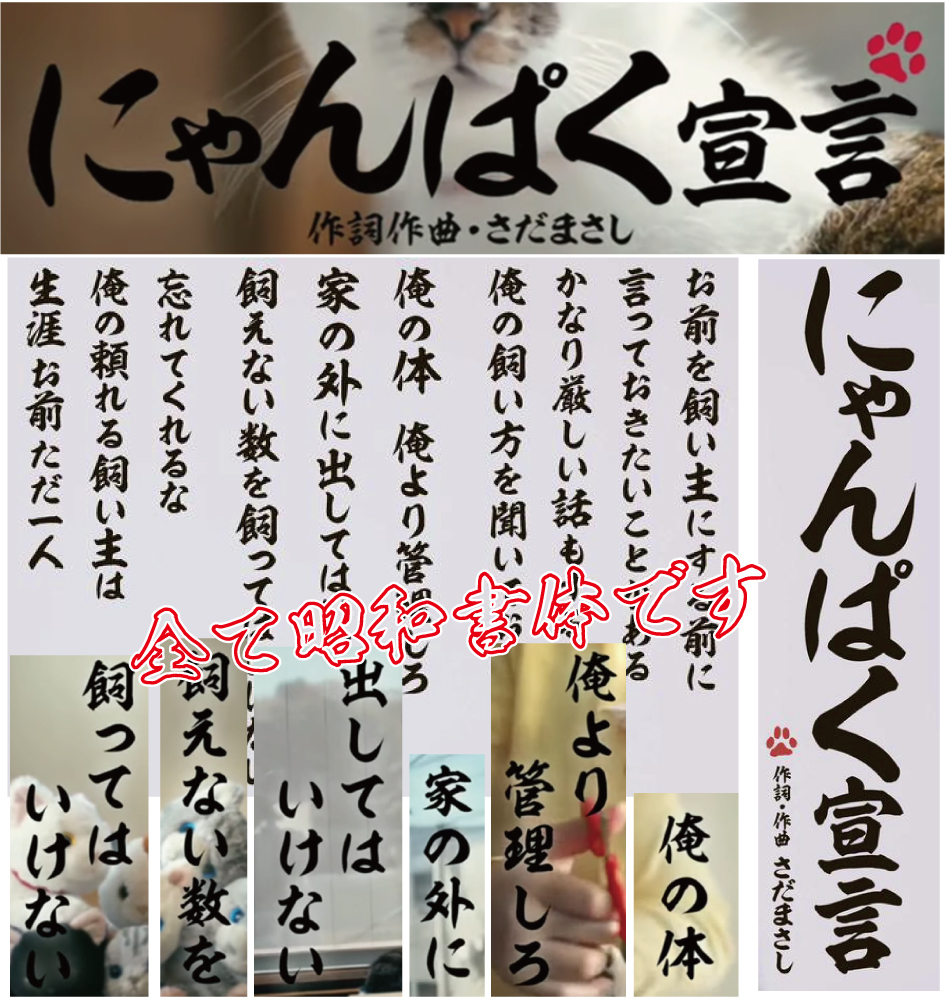 にゃんぱく宣言
作詞作曲・さだまさし
にゃんぱく宣言
作詞・作曲 さだまさし
お前を飼い主にする前に
言っておきたいことがある
かなり厳しい話も
俺の飼い方を聞い
俺の体 俺より管理しろ
家の外に出しては
飼えない数を飼って
忘れてくれるな
俺の頼れる飼い主は
生涯 お前ただ一人
全て昭和書体です
俺の体
俺より
管理しろ
家の外に
出しては
いけない
飼えない数を
飼っては
いけない